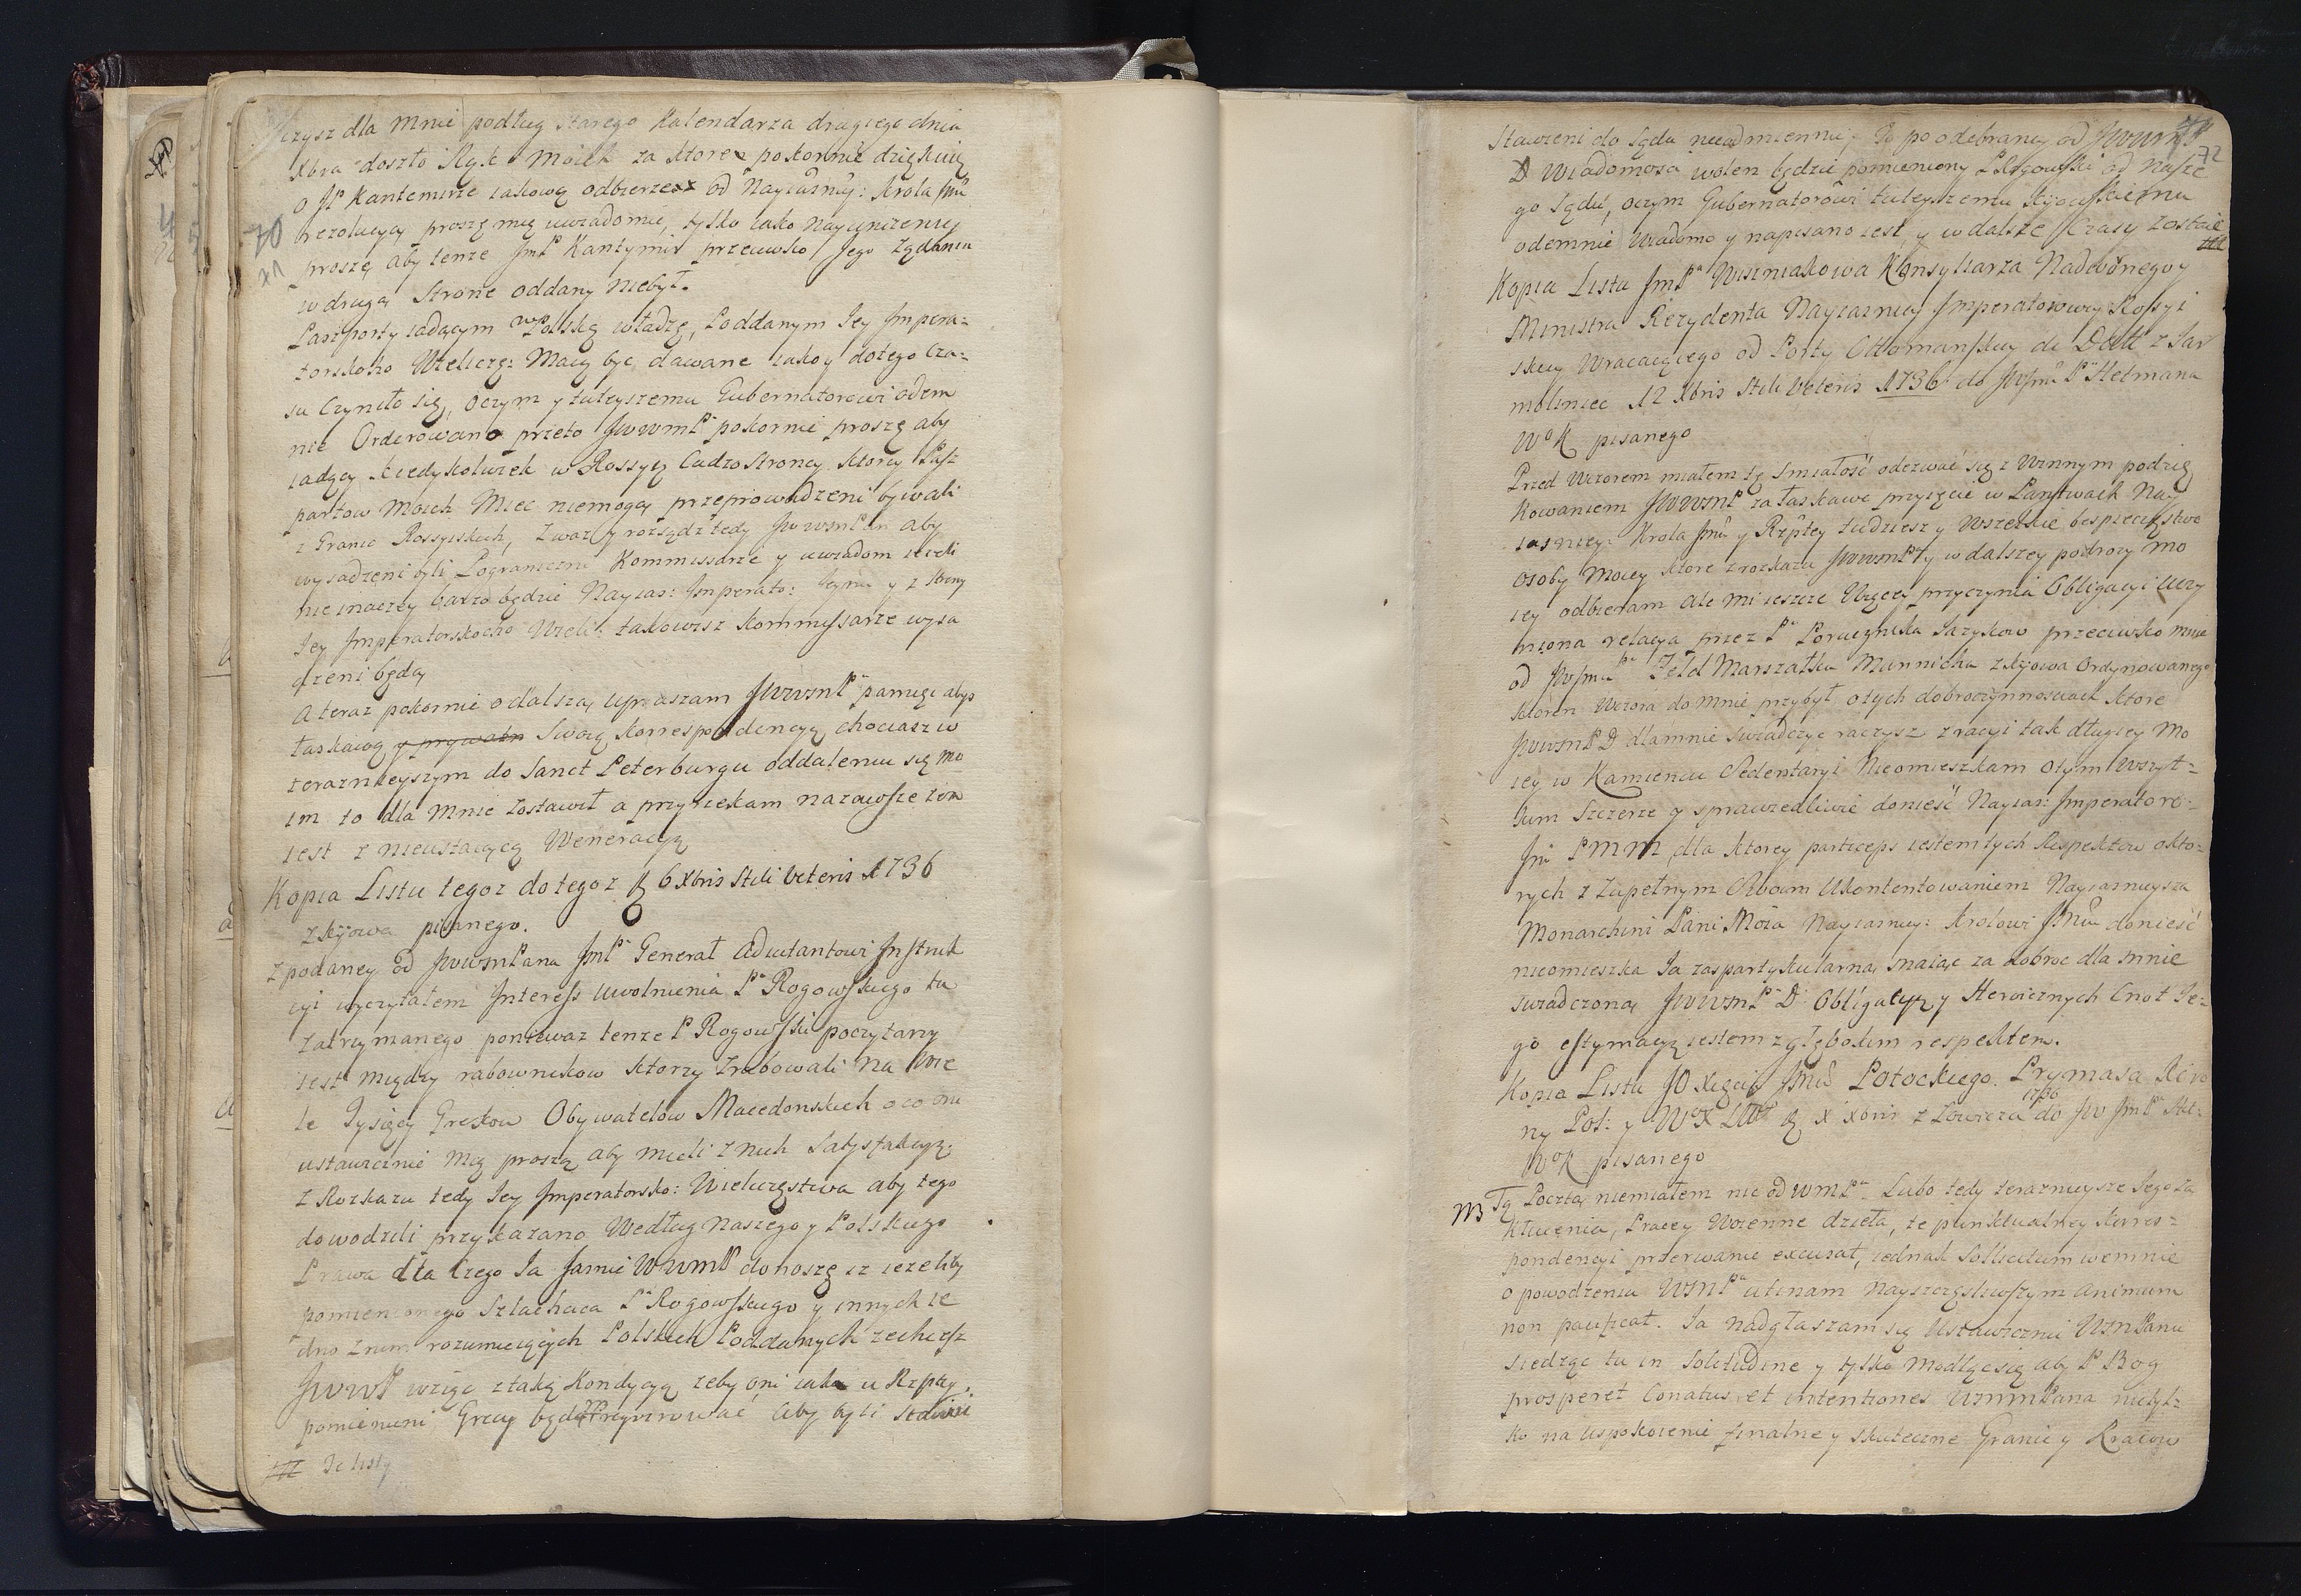 czysz dla mnie podług starego Kalendarza drugiego dnia
Xbra doszło Rąk moich za ktore pokornie dziękuię
o JP Kantemirze iakową odbierzesz od Nayiasney: Krola Jmci
rezolucyą proszę mię uwiadomic, tylko iako nayunizeniey
proszę aby tenze JmP Kantymir przeciwko Jego Ządaniu
w drugą Strone oddany niebył.
Paszporty iadącym w Polską władzę, Poddanym Jey Impera=
torskoho Wielicz: Maią byc dawane iako y dotego cza=
su Czyniło się, oczym y tuteyszemu Gubernatorowi odem
nie Orderowano przeto JWWmP pokornie proszę aby
iadący kiedykolwiek w Rossyą Cudzostroncy ktorzy Pasz
portow Moich Miec niemogą przeprowadzeni bywali
z Granic Rossyiskich, Zwaz y rosządz tedy JWWmPan aby
wysadzeni byli Pograniczni Kommissarze y uwiadom iezeli
nie inaczey barzo będzie Nayias: Imperato: Jeyma y z strony
Jey Imperatorskocho Wieli: takowisz Kommissarze wysa
dzeni będą
A teraz pokornie o dalszą upraszam JWWmP pamięc abys
łaskawą Swoią Korrespondencyą chociasz w
teraznieyszym do Sanct Peterburgu oddaleniu się mo
im to dla mnie zostawił a przyrzekam nazawsze zem
iest z nieustaiącą Weneracyą
Kopia Listu tegoz do tegoz D 6 Xbris Stili Veteris 1736
z Kijowa pisanego.
Z podaney od JWWmPana JmP General Adiutantowi Instruk
cyi wyczytałem Interess Uwolnienia P Rogowskiego tu
zatrzymanego poniewaz tenze P Rogowski poczytany
iest między rabownikow ktorzy zrabowali na Wie
le Tysięcy Grekow Obywatelow Macedonskich o co oni
ustawicznie mię proszą aby mieli z nich Satysfakcyą.
Z Rozkazu tedy Jey Imperatorsko: Wieliczestwa aby tego
dowodzili przykazano Według naszego y Polskiego
Prawa dla czego Ja Jamie WWmP donoszę iz iezeliby
pomienionego Szlachcica P Rogowskiego y innych ie
dno z nim rozumieiących Polskich Poddanych zechcesz
JWWP wziąc z taką Kondycyą zeby oni iako u Rzptey
pomienieni Grecy będą aby byli stawieni
70
71
Stawieni do Sądu nieodmiennie, To po odebraney od JWWmP
72
D Wiadomosci wolen będzie pomieniony P Rogowski od Nasze
go Sądu, oczym Gubernatorowi tuteyszemu Kijowskiemu
odemnie Wiadomo y napisano iest y w dalsze Czasy Zostaie
Kopia Listu JmP Wiszniakowa Konsyliarza Nadwornego y
Ministra Rezydenta Nayiasniey Imperatorowey Rossyi
skiey Wracaiącego od Porty Ottomanskiey de Datt z Jar
moliniec 12 Xbris Stili Veteris 1736 do JWJmP Hetmana
WoK pisanego
Przed Wczorem miałem tę smiałość odezwać się z Winnym podzię
kowaniem JWWmP za łaskawe przyięcie w Panstwach Nay
iasniey: Krola Jmci y Rzptey tudziesz y Wszelkie bespieczenstwo
osoby Moiey ktore z rozkazu JWWmP y w dalszey podrozy mo
iey odbieram ale mi ieszcze Więcey przyczynia Obligacyi Uczy
niona relacya przez P Porucznika Jazykow przeciwko mnie
od JWJm Feld Marszałka Munnicha z Kijowa Ordynowanego
ktoren Wczora do mnie przybył o tych dobroczynnosciach ktore
JWWmP D dlamnie swiadczyc raczysz z racyi tak długiey Mo
iey w Kamiencu Sedentaryi Nieomieszkam o tym Wszyt=
kim Szczerze y sprawiedliwie donieść Nayias: Imperatoro=
Jm PMM dla ktorey particeps iestem tych Respektow o kto=
rych z Zupełnym Ukontentowaniem Nayiasnieysza
Monarchini Pani Moia Nayiasniey: Krolowi Jmci donieść
nieomieszka Ja zas partykularną maiąc za dobroc dla mnie
swiadczoną JWWmP D Obligacyą y Heroicznych Cnot Je=
go estymacyą iestem z głębokim respektem.
Kopia Listu JO Xcięcia Jmci Potockiego. Prymasa Koro
ny Pol: y WoX Litt D X Xbris 1736 z Łowicza do JW JmP Het:
WoK pisanego
NB Tą Pocztą niemiałem nic od WmP. Lubo tedy teraznieysze Jego Za
kłucenia, Pracey Woienne dzieła, te punktualney Korres=
pondencyi przerwanie excusat, iednak Sollicitum we mnie
o powodzeniu WmP utinam Nayszczęsliwszym animum
non pacificat. Ja nadgłaszam się Ustawicznie WmPanu
siedząc tu in Solitudine y tylko modląc się aby P Bog
prosperet Conatus et intentiones WmmPana nietyl=
ko na uspokoienie finalne y skuteczne Granic y Kraiow